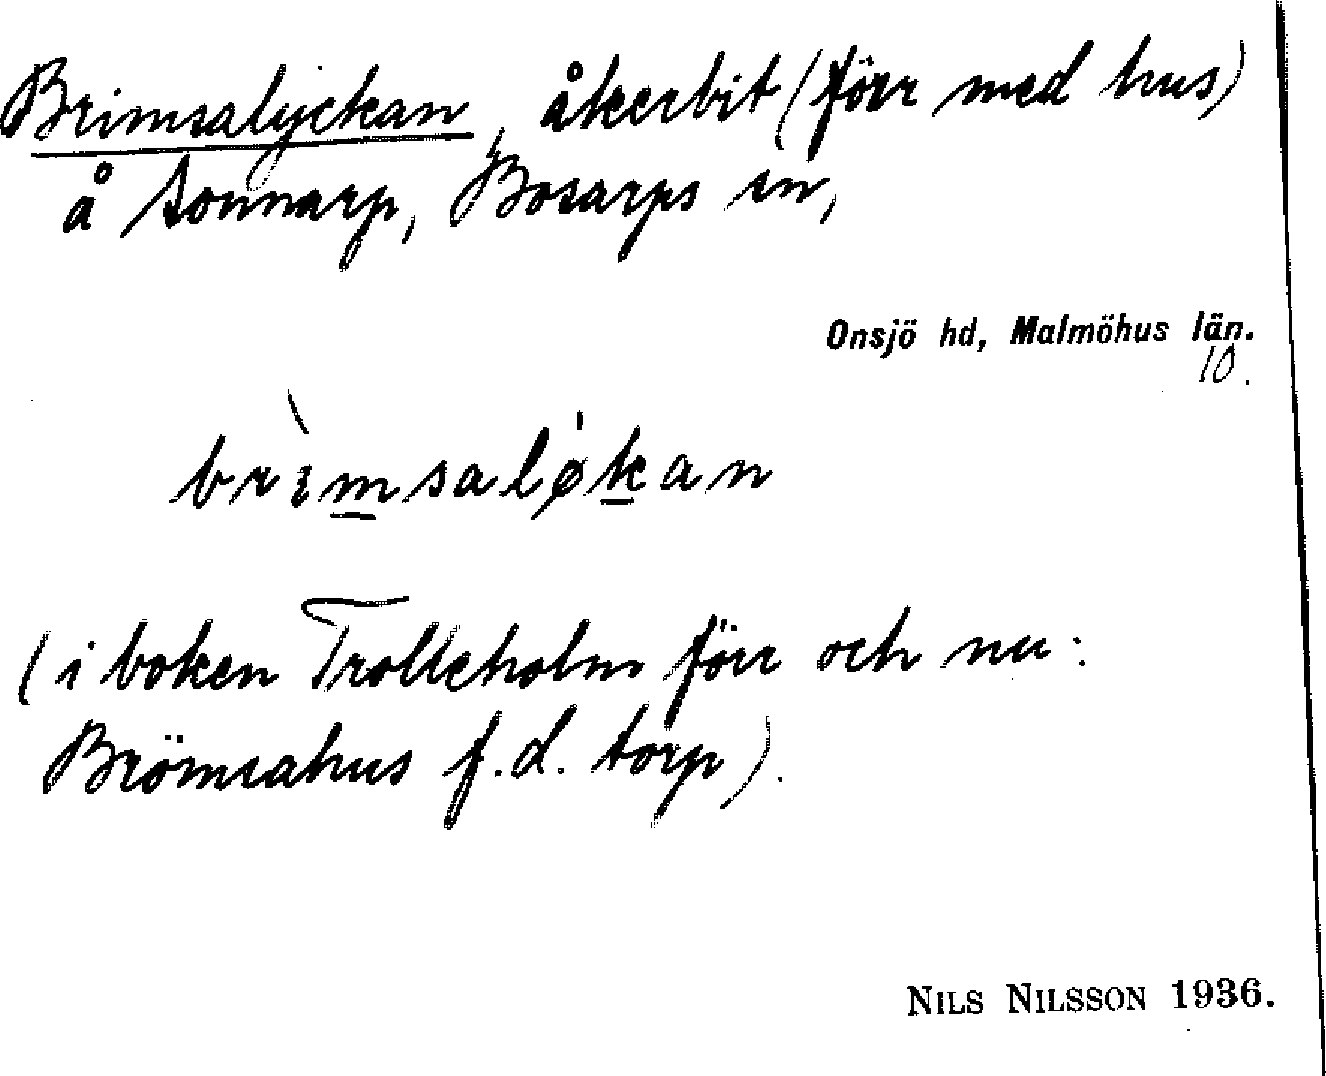 Brimsalyckan, åkerbit (förr med hus)
å Sonnarp, Bosarps sn,
Onsjö hd, Malmöhus län.
10.
brìmsaløkan
(i boken Trolleholm förr och nu:
Brömsahus f.d. torp).
NILS NILSSON 1936.